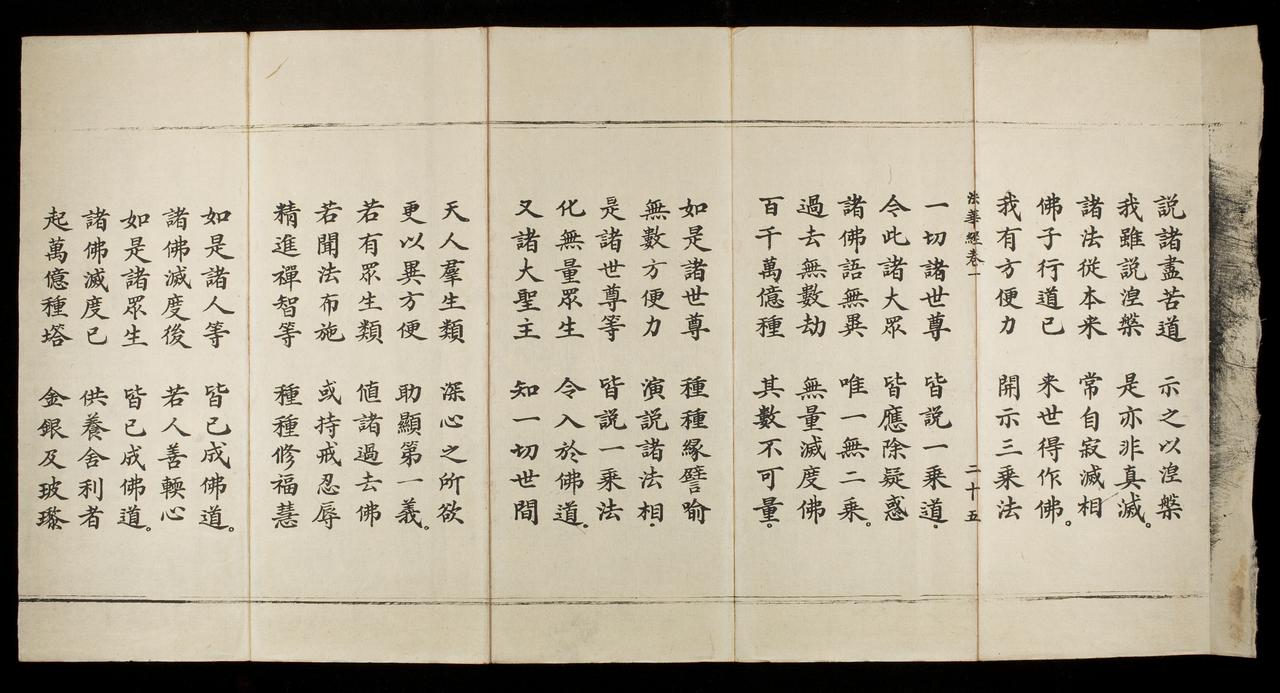 說諸盡苦道 示之以湼槃
我雖說湼槃 是亦非真滅。
諸法從本来 常自寂滅相
佛子行道已 来世得作佛。
我有方便力 開示三乗法
法華經卷一 二十五
一切諸世尊 皆說一乗道。
令此諸大眾 皆應除疑惑
諸佛語無異 唯一無二乗。
過去無數劫 無量滅度佛
百千萬億種 其數不可量。
如是諸世尊 種種緣譬喻
無數方便力 演說諸法相。
是諸世尊等 皆說一乗法
化無量眾生 令入於佛道。
又諸大聖主 知一切世間
天人羣生類 深心之所欲
更以異方便 助顯第一義。
若有眾生類 值諸過去佛
若聞法布施 或持戒忍辱
精進禪智等 種種修福慧
如是諸人等 皆已成佛道。
諸佛滅度後 若人善輭心
如是諸眾生 皆已成佛道。
諸佛滅度已 供養舍利者
起萬億種塔 金銀及玻瓈